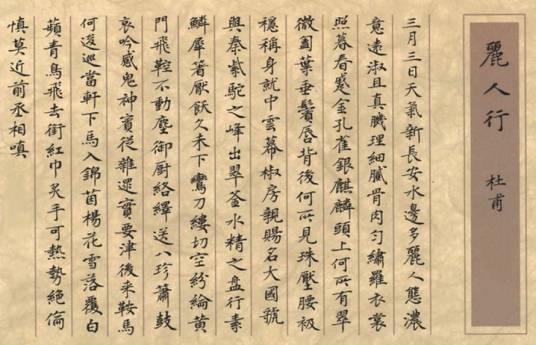 麗人行
杜甫
三月三日天氣新長安水邊多麗人態濃
意遠淑且真肌理細膩骨肉勻繡羅衣裳
照暮春蹙金孔雀銀麒麟頭上何所有翠
微㔩葉垂鬢唇背後何所見珠壓腰衱
穩稱身就中雲幕椒房親賜名大國號
與秦紫駝之峰出翠釜水精之盤行素
鱗犀箸厭飫久未下鸞刀縷切空紛綸黃
門飛鞚不動塵御厨絡繹送八珍簫鼓
哀吟感鬼神賓從雜遝實要津後來鞍馬
何逡巡當軒下馬入錦茵楊花雪落覆白
蘋青鳥飛去銜紅巾炙手可熱勢絕倫
慎莫近前丞相嗔